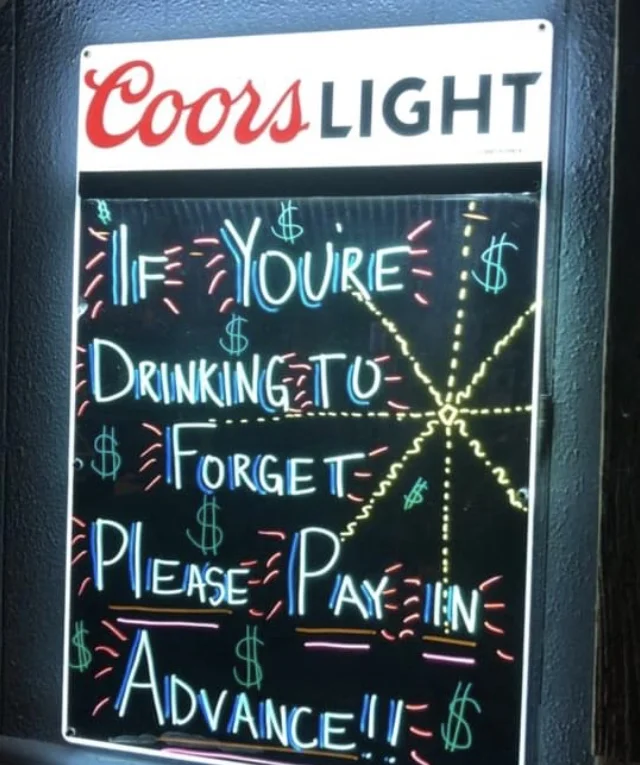 Coors LIGHT
IF YOU'RE
DRINKING TO
FORGET
PLEASE PAY IN
ADVANCE!!